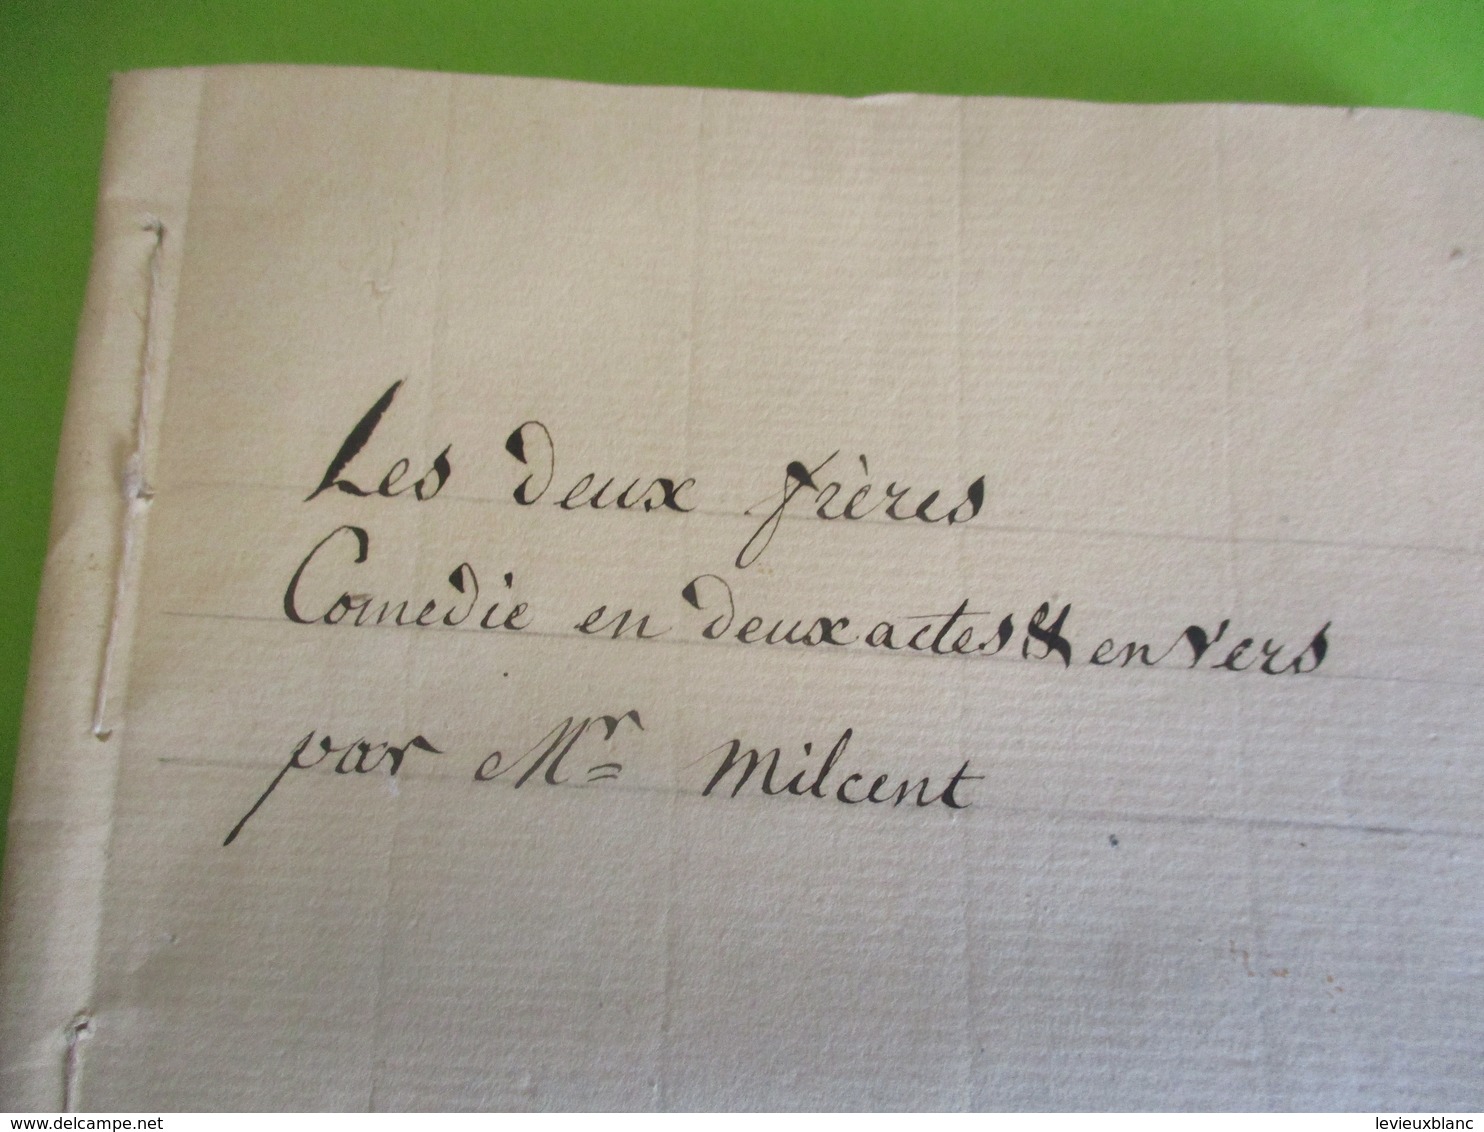 Les deux frères
Comedie en deux actes & en vers
par Mr Milcent
delcampe.net
levieuxblanc